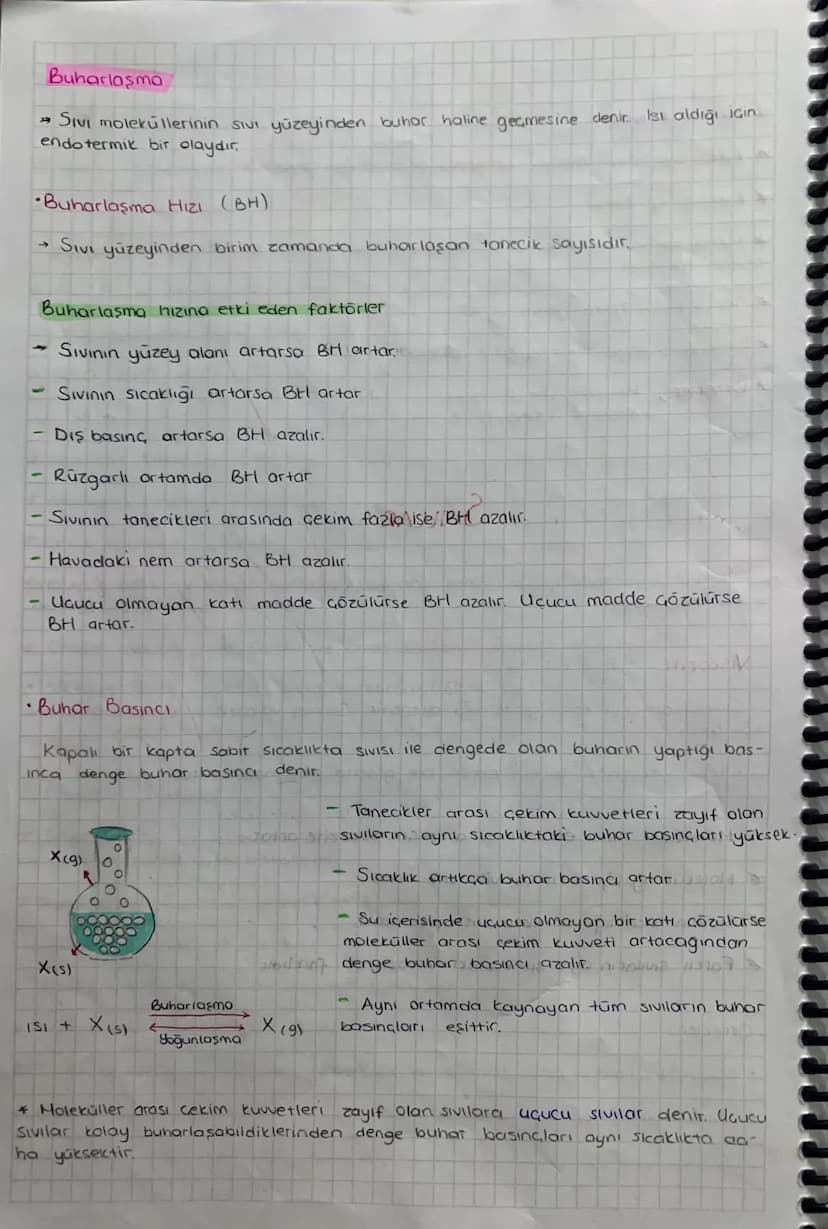 Buharlaşma
→ Sıvı moleküllerinin sıvı yüzeyinden buhar haline geçmesine denir. Isı aldığı için
endotermik bir olaydır.
• Buharlaşma Hızı (BH)
→ Sıvı yüzeyinden birim zamanda buharlaşan tanecik sayısıdır.
Buharlaşma hızına etki eden faktörler
- Sıvının yüzey alanı artarsa BH artar.
- Sıvının sıcaklığı artarsa BH artar
- Dış basınç artarsa BH azalır.
- Rüzgarlı ortamda BH artar
- Sıvının tanecikleri arasında çekim fazla ise BH azalır.
- Havadaki nem artarsa BH azalır.
- Uçucu olmayan katı madde çözülürse BH azalır. Uçucu madde çözülürse
BH artar.
• Buhar Basıncı
Kapalı bir kapta sabit sıcaklıkta sıvısı ile dengede olan buharın yaptığı bas-
ınca denge buhar basıncı denir.
X(g)
X(s)
Isı + X(s) Buharlaşma Yoğunlaşma X(g)
- Tanecikler arası çekim kuvvetleri zayıf olan
sıvıların aynı sıcaklıktaki buhar basınçları yüksek.
- Sıcaklık artıkça buhar basıncı artar.
- Su içerisinde uçucu olmayan bir katı çözülürse
moleküller arası çekim kuvveti artacağından
denge buhar basıncı azalır.
- Aynı ortamda kaynayan tüm sıvıların buhar
basınçları eşittir.
* Moleküller arası çekim kuvvetleri zayıf olan sıvılara uçucu sıvılar denir. Uçucu
sıvılar kolay buharlaşabildiklerinden denge buhar basınçları aynı sıcaklıkta da-
ha yüksektir.